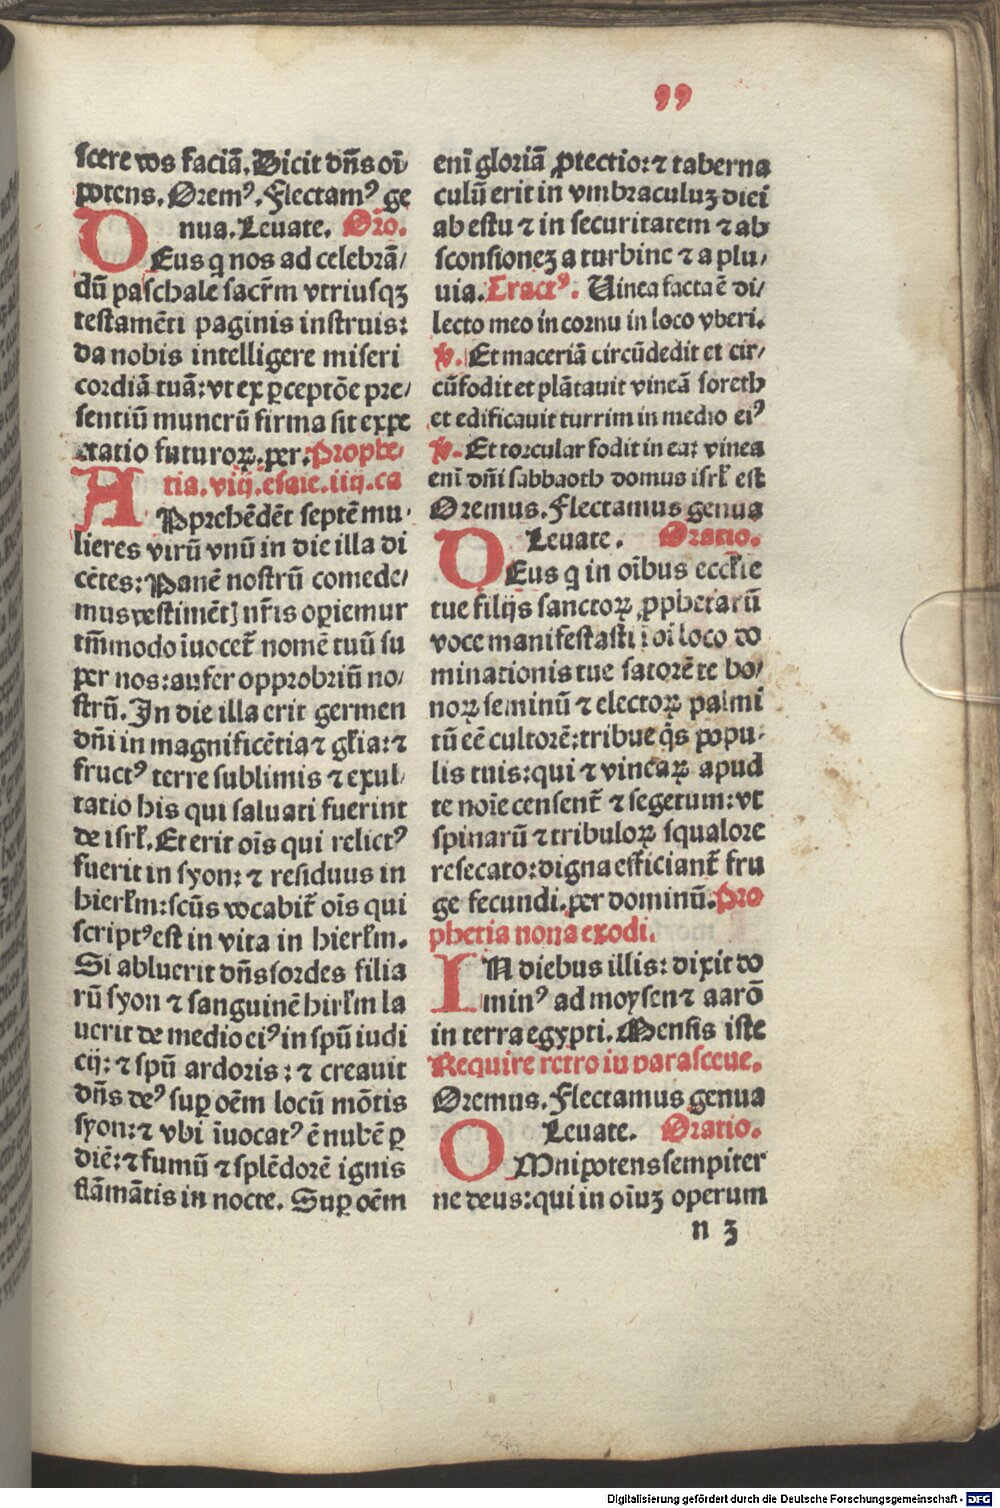 99
scere vos faciā. Dicit dn̄s oī-
potens. Oremꝰ. Flectamꝰ ge
nua. Leuate. Oro.
DEus q nos ad celebrā/
dū paschale sacr̄m vtriusqꝫ
testamēti paginis instruis:
da nobis intelligere miseri
cordiā tuā: vt ex ꝑceptōe pre/
sentiū munerū firma sit expe
ctatio futuroꝝ. per. Prophe/
tia. viij. esaie. iiij. ca
APprehēdēt septē mu-
lieres virū vnū in die illa di
cētes: Panē nostrū comede/
mus vestimēt] nr̄is oꝑiemur
tm̄modo īuocet̄ nomē tuū su
per nos: aufer opprobriū no/
strū. In die illa erit germen
dn̄i in magnificētia ⁊ gl̄ia: ⁊
fructꝰ terre sublimis ⁊ exul/
tatio his qui saluati fuerint
de isrl̄. Et erit oīs qui relictꝰ
fuerit in syon: ⁊ residuus in
hierl̄m: scūs vocabit̄ oīs qui
scriptꝰ est in vita in hierl̄m.
Si abluerit dn̄s sordes filia
rū syon ⁊ sanguinē hirl̄m la
uerit de medio eiꝰ in spū iudi
cij: ⁊ spū ardoris: ⁊ creauit
dn̄s deꝰ suꝑ oēm locū mōtis
syon: ⁊ vbi īuocatꝰ ē nubē ꝑ
diē: ⁊ fumū ⁊ splēdorē ignis
flāmātis in nocte. Suꝑ oēm
enī gloriā ꝓtectio: ⁊ taberna
culū erit in vmbraculuꝫ diei
ab estu ⁊ in securitatem ⁊ ab
sconsioneꝫ a turbine ⁊ a plu/
uia. Tractꝰ. Uinea facta ē di/
lecto meo in cornu in loco vberi.
℣. Et maceriā circūdedit et cir/
cūfodit et plātauit vineā soreth
et edificauit turrim in medio eiꝰ
℣. Et torcular fodit in ea: vinea
enī dn̄i sabbaoth domus isrl̄ est
Oremus. Flectamus genua
Leuate. Oratio.
DEus q in oībus eccl̄ie
tue filijs sanctoꝝ ꝓphetarū
voce manifestasti ī oī loco do
minationis tue satorē te bo/
noꝝ seminū ⁊ electoꝝ palmi
tū eē cultorē: tribue q̄s popu-
lis tuis: qui ⁊ vineaꝝ apud
te noīe censent̄ ⁊ segetum: vt
spinarū ⁊ tribuloꝝ squalore
resecato: digna efficiant̄ fru
ge fecundi. per dominū. Pro
phetia nona exodi.
IN diebus illis: dixit do
minꝰ ad moysen ⁊ aarō
in terra egypti. Mensis iste
Require retro in parasceue.
Oremus. Flectamus genua
Leuate. Oratio.
OMnipotens sempiter
ne deus: qui in oīuꝫ operum
n 3
Digitalisierung gefördert durch die Deutsche Forschungsgemeinschaft - DFG